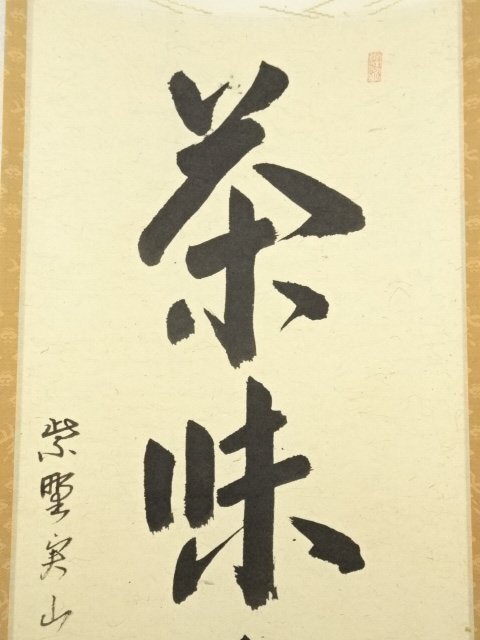 茶味
紫野実山